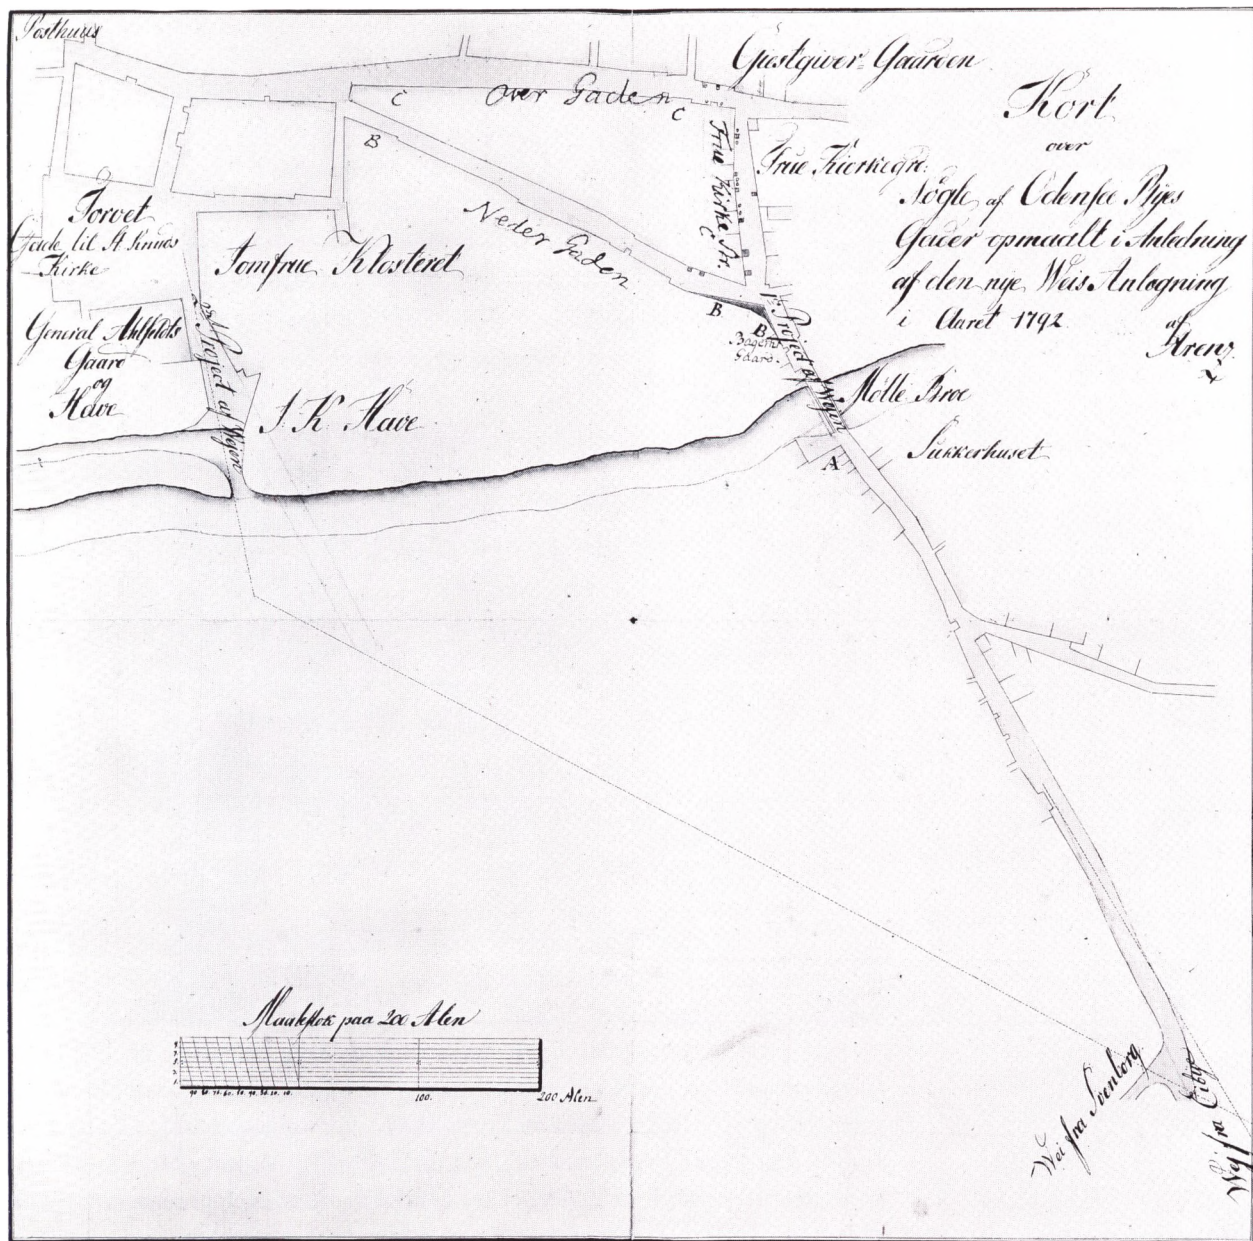 Posthuus
Giestgiver-Gaarden
Kort
over
Nogle af Odensee Byes
Gader opmaalt i Anledning
af den nye Weis Anlægning
i Aaret 1792
af
C
Over Gaden
C
B
Frue Kirke Str.
C
Frue Kierkegr:
Torvet
Gade til St Knuds
Kirke
Jomfrue Klosteret
Neder Gaden
General Ahlfeldts
Gaard
og
Have
2det Project af Wejen
J. K. Have
B
B
Gaard
1te Project af Wejen
Mølle Broe
A
Sukkerhuset
Maalestok paa 200 Alen
90. 80. 70. 60. 50. 40. 30. 20. 10.
100.
200 Alen
Wei fra Svenborg
Wej fra